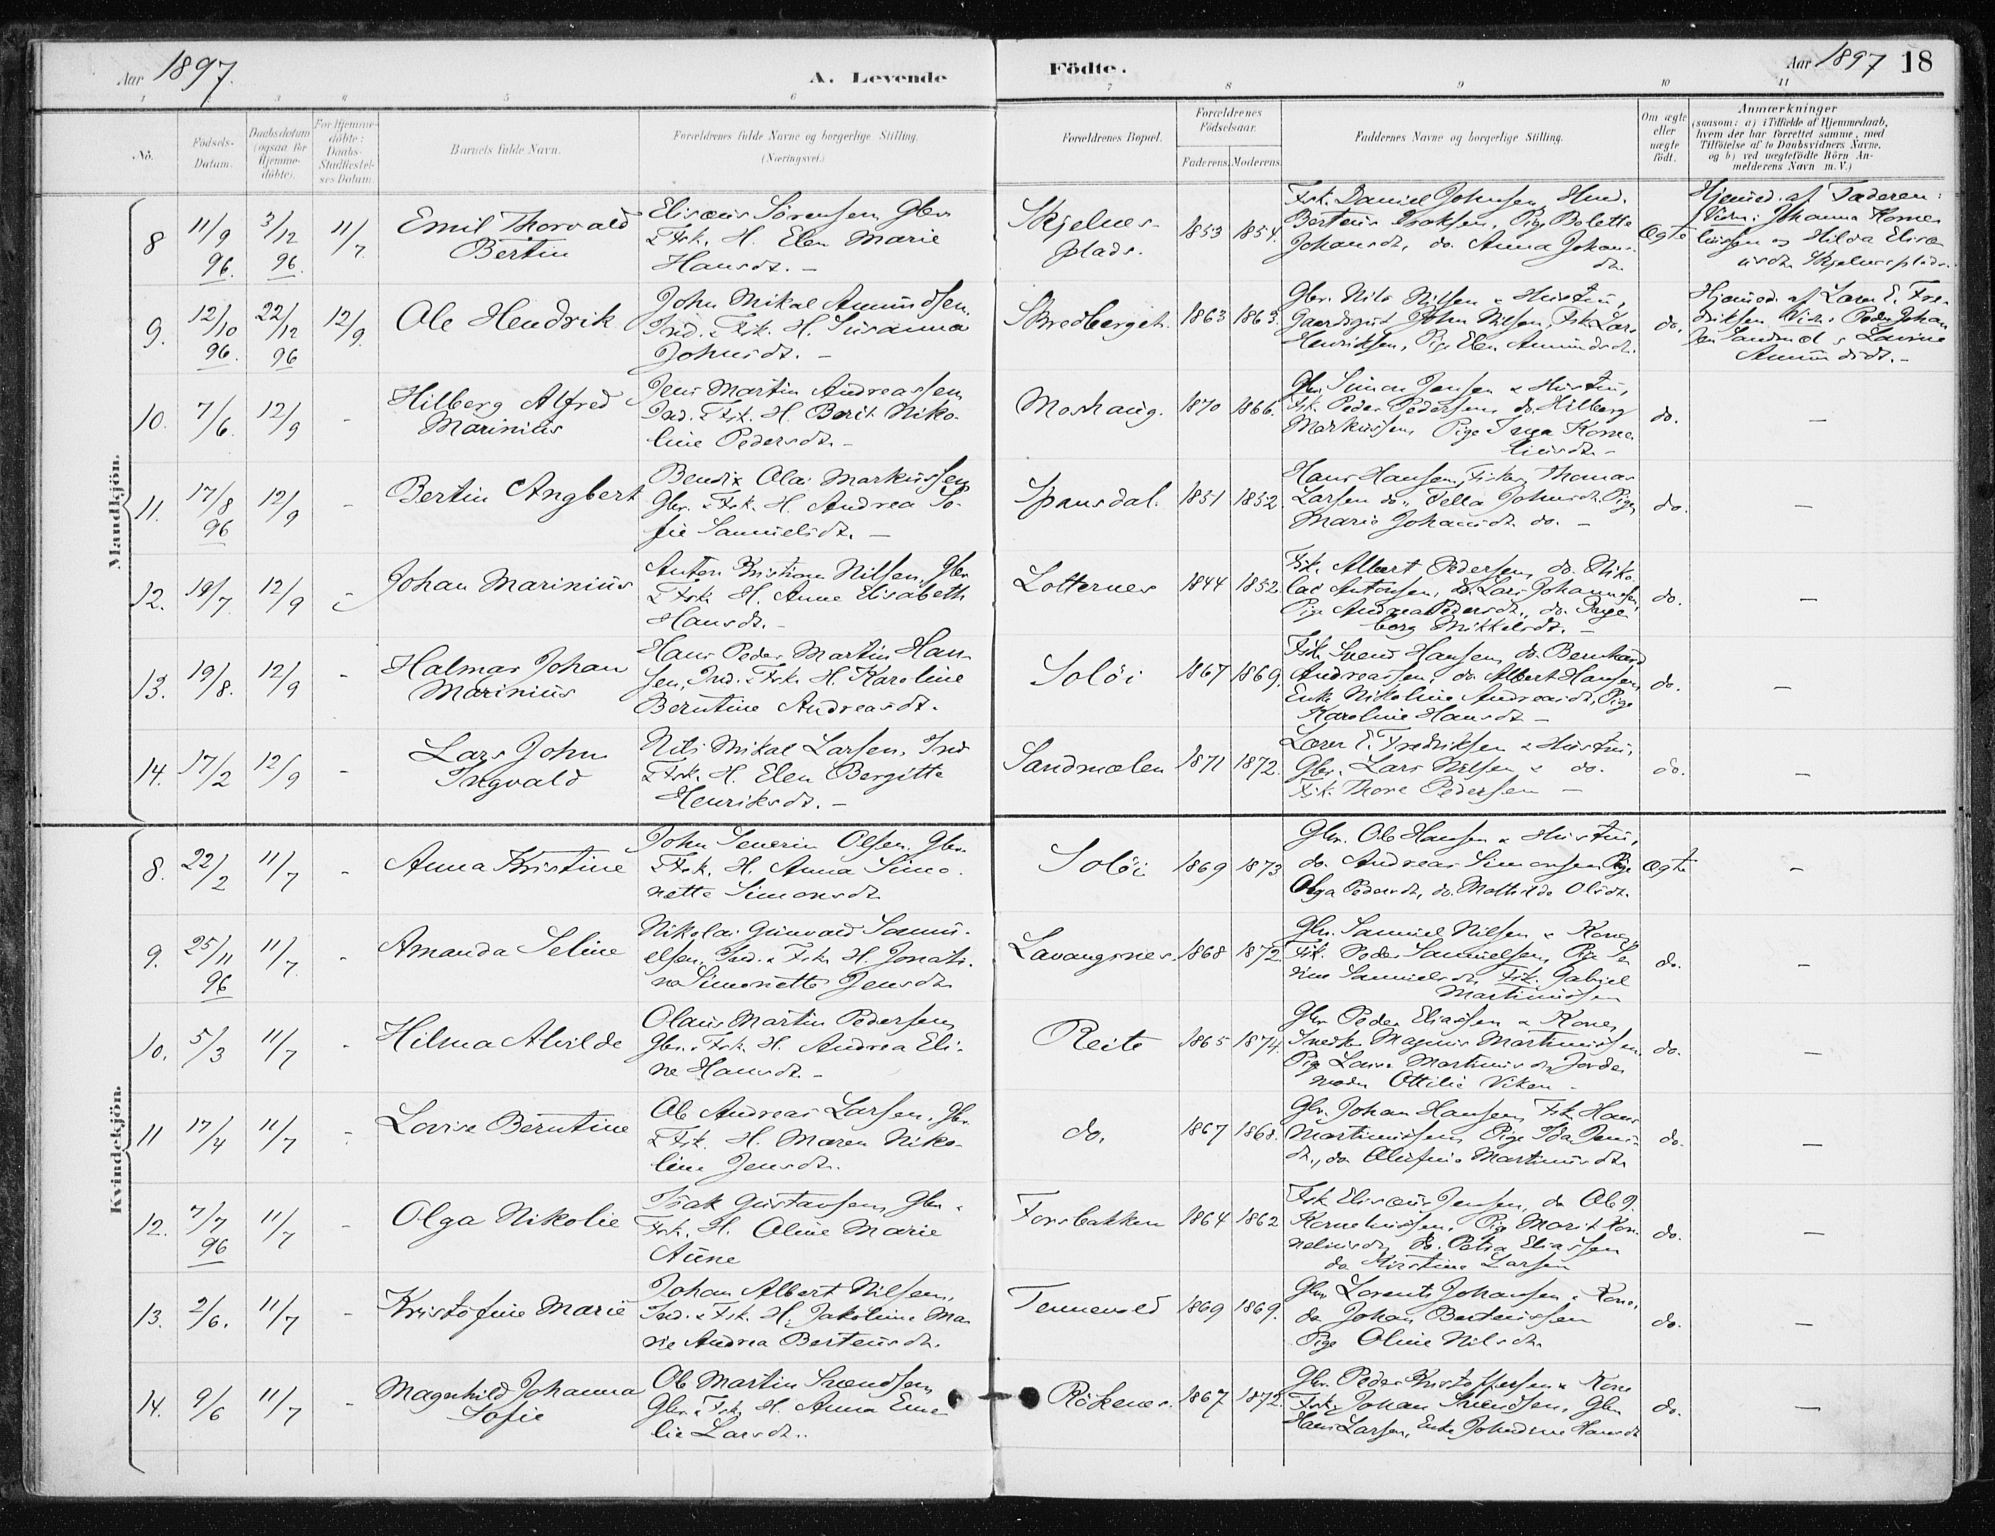 Aar 1897.
A. Levende
Födte.
Aar 1897
18
1 2 3 4 5 6 7 8 9 10 11
No.
Födsels-
Datum.
Daabsdatum
(ogsaa for
Hjemme-
döbte).
For Hjemme-
döbte:
Daabs-
Stadfæstel-
ses Datum.
Barnets fulde Navn.
Forældrenes fulde Navne og borgerlige Stilling.
(Næringsvei.)
Forældrenes Bopæl.
Forældrenes
Födselsaar.
Faderens. Moderens.
Faddernes Navne og borgerlige Stilling.
Om ægte
eller
uægte
födt.
Anmærkninger
(saasom: a) i Tilfælde af Hjemmedaab,
hvem der har forrettet samme, med
Tilföielse af to Daabsvidners Navne,
og b) ved uægtefödte Börn An-
melderens Navn m. V.)
Mandkjön.
8
11/9
96.
3/12
96.
11/7.
Emil Thorvald
Bertin
Elisæus Sörensen, Gbr.
& Fsk. H. Elen Marie
Hansdt. —
Skjelnes-
plads.
1853
1854.
Fsk. Daniel Johnsen,
Pige Bolette
Johansdt, do. Anna Johans-
dt.
Ægte
Hjemmed. af Faderen:
Vidn: Johanna Korne-
liussen og Hilda Elisæ-
usdt. Skjelnesplads.
9.
12/10
96.
22/12
96
12/9.
Ole Hendrik
John Mikal Amundsen,
Ind. & Fsk. H. Susanna
Johnsdt. —
Skredberget.
1863
1863.
Gbr. Nils Nilsen & Hustru,
Gaardsgut John Nilsen, Fsk. Lars
Henriksen, Pige Elen Amundsdt.
do.
Hjemmed. af Lærer E. Fre-
driksen Vidn: Peder Johan
sen Sandmæl & Lovine
Amundsdt. —
10.
7/6.
12/9
-
Hilberg Alfred
Marinius
Jens Martin Andreassen,
Ind. & Fsk. H. Berit Niko-
line Pedersdt. —
Moshaug.
1870
1866.
Gbr. Simon Jensen & Hustru,
Fsk. Peder Pedersen, do. Hilberg
Markussen, Pige Inga Korne-
liusdt. —
do.
—
11.
17/8
96
12/9
-
Bertin Angbert
Bendix Olai Markussen
Gbr. & Fsk. H. Andrea So-
fie Samuelsdt. —
Spansdal.
1851
1852.
Hans Hansen, Fisker, Thomas
Larsen do., Pella Johnsdt. Pige,
Marie Johansdt. do. —
do.
—
12.
19/7.
12/9
-
Johan Marinius
Anton Kristian Nilsen, Gbr.
& Fsk. H. Anne Elisabeth
Hansdt. —
Lotternes
1844
1852
Fsk. Albert Pedersen, do. Niko-
lai Antonsen, do. Lars Johannesen,
Pige Andrea Pedersdt., do. Inge
borg Mikkelsdt. —
do.
—
13.
19/8.
12/9
-
Halmar Johan
Marinius
Hans Peder Martin Han-
sen, Ind. & Fsk. H. Karoline
Berntine Andreasdt.
Solöi
1867
1869.
Fsk. Svend Hansen, do. Bernhard
Andreassen, do. Albert Hansen,
Enke Nikoline Andreasdt, Pige
Karoline Hansdt. —
do.
—
14.
17/2
12/9
-
Lars John
Ingvald
Nils Mikal Larsen, Ind
& Fsk. H. Elen Bergitte
Henriksdt. —
Sandmælen
1871
1872.
Lærer E. Fredriksen & Hustru,
Gbr. Lars Nilsen & do.
Fsk. Thore Pedersen —
do.
—
Kvindekjön.
8.
22/2
11/7
-
Anna Kristine
John Severin Olsen, Gbr.
& Fsk. H. Anna Simo-
nette Simonsdt.
Solöi
1869
1873
Gbr. Ole Hansen & Hustru,
do. Andreas Simonsen, Pige
Olga Pedersdt, do. Mathilde Olsdt.
Ægte
—
9.
25/11
96
11/7
-
Amanda Seline
Nikolai Grunvald Samu-
elsen, Ind. & Fsk. H. Joneti-
ne Simonette Jensdt.
Lavangsnes.
1868
1872
Gbr. Samuel Nilsen & Kone,
Fsk. Peder Samuelsen, Pige Se
rine Samuelsdt, Fsk. Gabriel
Martinussen
do.
—
10.
5/3
11/7
-
Hilma Alvilde
Olaus Martin Pedersen,
Gbr. & Fsk. H. Andrea Eli-
ne Hansdt. —
Reite
1865
1874.
Gbr. Peder Eliassen & Kone,
Snedk. Magnus Martinussen,
Pige Lovise Martinusdt, Jorde-
moder Ottilie Viken —
do.
—
11
17/4
11/7
-
Lovise Berntine
Ole Andreas Larsen, Gbr.
& Fsk. H. Maren Niko-
line Jensdt.
do.
1867
1868.
Gbr. Johan Hansen, Fsk. Hans
Martinussen, Pige Ida Jens-
dt., do. Martinusdt.
do.
—
12.
7/7
96
11/7
-
Olga Nikolie
Isak Gustavsen, Gbr. &
Fsk. H. Oline Marie
Aune
Forsbakken
1864
1862
Fsk. Elisæus Jensen, do. Ole J.
Korneliussen, Pige Marit Kor-
neliusdt, do. Petra Eliassen
do. Kirstine Larsen
do.
—
13.
2/6.
11/7
-
Kristofine Marie
Johan Albert Nilsen,
Ind. & Fsk. H. Jakobine Ma-
rie Andrea Berteusdt.
Tennevold
1869
1869.
Gbr. Lorents Johansen & Kone,
do. Johan Berteussen
Pige Oline Nilsdt.
do.
—
14.
9/6
11/7
-
Magnhild Johanna
Sofie
Ole Martin Svendsen,
Gbr. & Fsk. H. Anna Eme-
lie Larsdt.
Rökenes.
1867
1872.
Gbr. Peder Kristoffersen & Kone
Fsk. Johan Svendsen, Gbr.
Hans Larsen, Enke Johanna Hansdt
do.
—